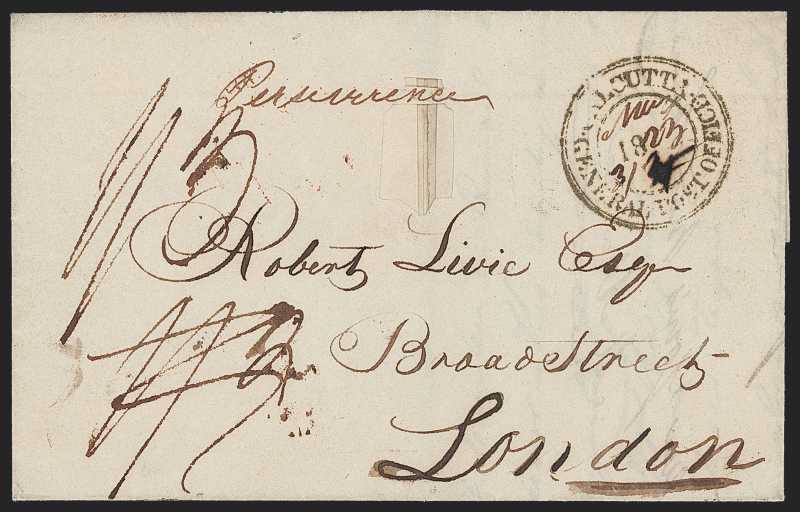 Perseverence
CALCUTTA
GENERAL POST OFFICE
18
Robert Livie Esqr
Broad Street
London